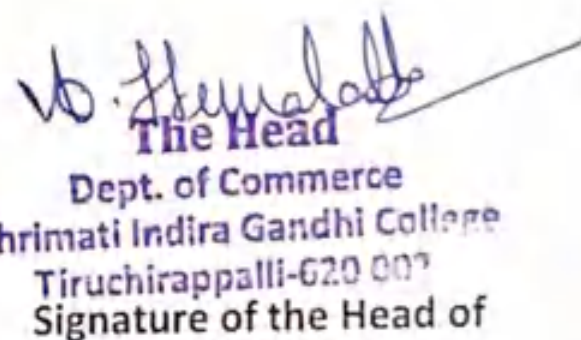 The Head
Dept. of Commerce
hrimati Indira Gandhi College
Tiruchirappalli-620 002
Signature of the Head of